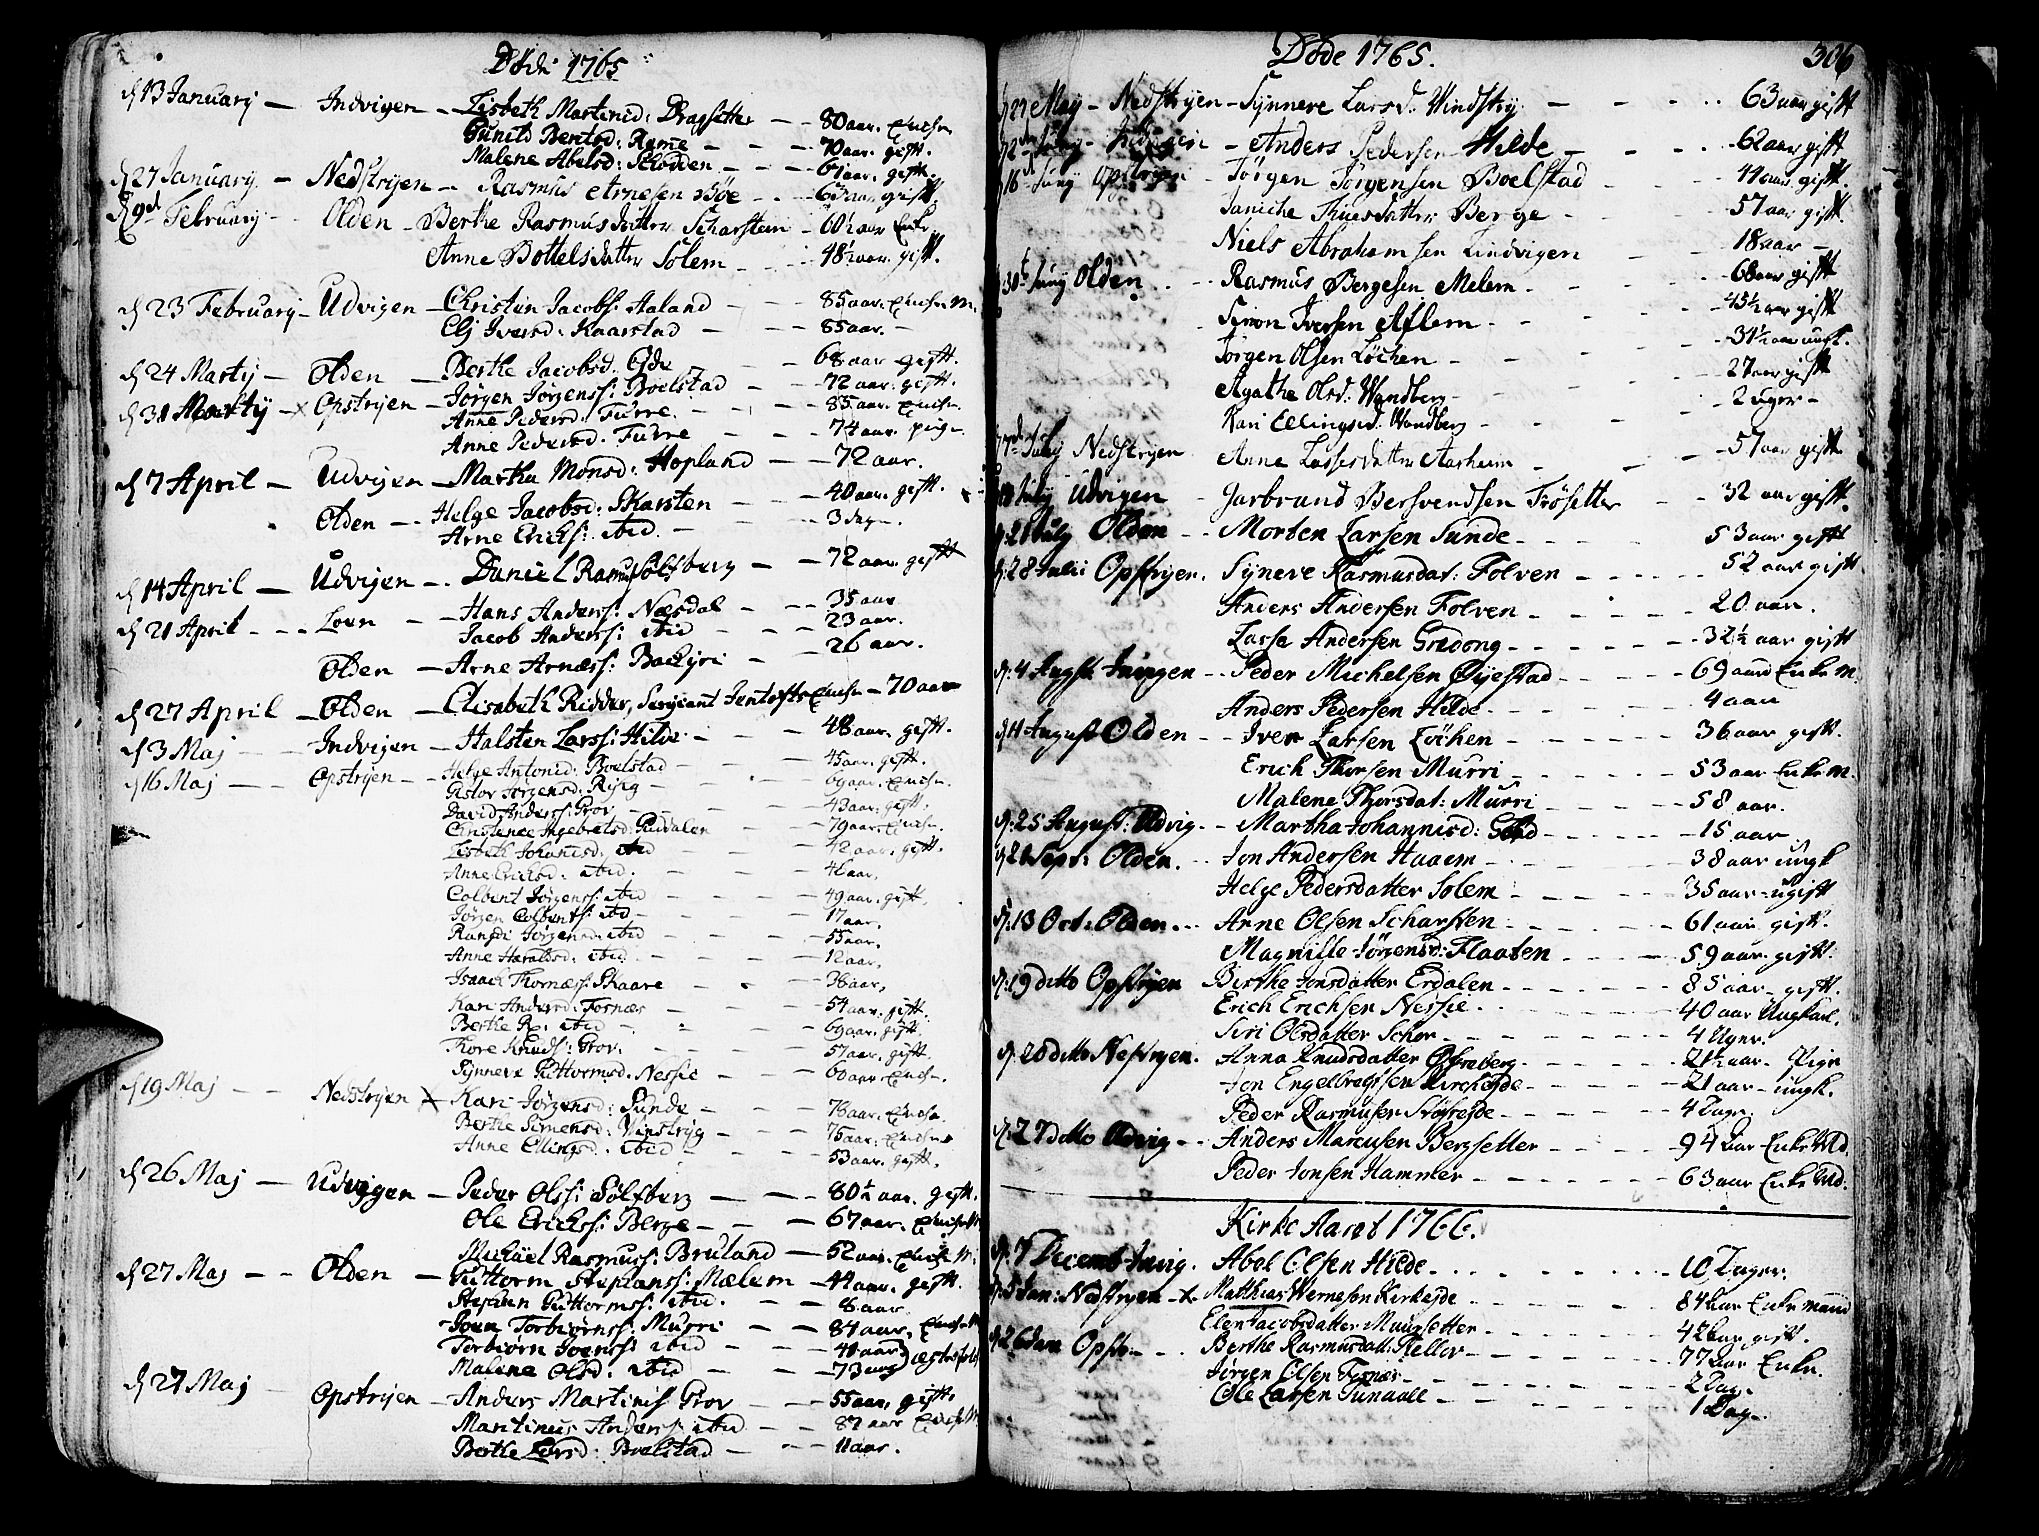 Døde 1765
d 13 January — Indvigen — Lisbeth Martinsd: Dragsetter — 80 aar. Encke
Gunild Bentsd: Ræme — 70 aar. gift.
Malene Abelsd: Skodden — 61 aar. gift.
d 27 January — Nedstryen — Rasmus Arnesen Bøe — 63 aar. gift.
d 9d February — Olden — Berthe Rasmusdatter Scharsteen — 60½ aar Enke
Anne Bottelsdatter Solem — 48½ aar. gift.
d 23 February — Udvigen — Christen Jacobs: Aaland — 85 aar. Encke M.
Elj Iversd: Kaarstad — 85 aar.
d 24 Martij — Olden — Berthe Jacobsd. Eide — 68 aar gift.
d 31 Martij — x Opstryen — Jørgen Jørgenss: Boelstad — 72 aar. gift.
Anne Pedersd: Furre — 85 aar. Encke
Anne Pedersd: Furre — 74 aar. pige
d 7 April — Udvigen — Martha Monsd: Hopland — 72 aar.
Olden — Helge Jacobsd: Skarsten — 40 aar. gift.
Arne Ericks: ibid. — 3 dag.
d 14 April — Udvigen — Daniel Rasmuss Sølfberg — 72 aar. gift
d 21 April — Loen — Hans Anderss: Næsdal — 35 aar
Jacob Anderss: ibid — 23 aar.
Olden — Arne Arness: Bachjri — 26 aar.
d 27 April — Olden — Elisabeth Ridder, Sergiant Jentofts Encke — 70 aar
d 3 Maj — Indvigen — Halsten Larss: Hilde — 48 aar. gift.
d 16 Maj — Opstryen — Helge Antonid: Boelstad — 45 aar. gift.
Gislov Jørgensd: Rysig — 69 aar. Encke
David Anderss: Grov — 43 aar. gift.
Christence Ingebretsd: Guddalen — 79 aar. Encke
Lisbeth Johanisd: ibid — 42 aar. gift.
Anne Ericksd: ibid. — 41 aar.
Colbent Jørgenss: ibid — 49 aar. gift.
Jørgen Colbentss: ibid — 17 aar.
Randi Jørgensd: ibid — 55 aar.
Anne Haraldsd: ibid. — 12 aar.
Isaach Thomæss: Skaare — 36 aar.
Kari Andersd: Fornæs — 54 aar. gift.
Berthe R: ibid — 69 aar. gift.
Thore Knuds: Grov. — 57 aar. gift.
Synneve Guttormsd. Nessie — 60 aar. Encke
d 19 Maj — Nedstryen x Kari Jørgensd: Sunde — 76 aar. Encke
Berthe Simensd: Vinstryg — 75 aar: Encke
Anne Ellingsd: ibid — 53 aar. gift.
d 26 Maj — Udvigen — Peder Olss: Sølfberg — 80½ aar. gift.
Ole Erickss: Berge — 67 aar. Encke M
Michael Rasmuss: Bruland — 52 aar. Encke M.
d 27 Maj — Olden — Guttorm Stephanss: Mælem — 44 aar. gift.
Stephen Guttormss: ibid. — 8 aar.
Joen Torbiørnss: Murri — 84 aar. Encke M
Torbiørn Joenss: ibid — 40 aar
Malene Olsd: ibid — 73 aar
d 27 Maj — Opstryen — Anders Martinss Grov — 55 aar. gift.
Martinus Anderss: ibid — 87 aar Encke M
Berthe Larsd: Bolstad — 11 aar.
Døde 1765.
306
d 27 May — Nedstryen — Synneve Larsd. Windstry — 63 aar gift
Anders Pedersen Hilde — 62 aar gift
d 16 Juny Opstryen — Jørgen Jørgensen Boelstad — 44 aar. gift.
Janiche Thuesdatter Berge — 57 aar gift.
Niels Abrahamsen Lindvigen — 18 aar —
d 30t Juny Olden — Rasmus Bergesen Melem — 68 aar gift
Simon Iversen Aflem — 45½ aar gift
Jørgen Olsen Løchen — 31½ aar ungk.
Agathe Olsd: Wandberg — 27 aar gift
Kari Ellingsd: Wandberg — 2 uger —
7d July Nedstryen Anne Lassesdatter Aarheim — 57 aar gift
July Udvigen — Garbrand Bersvendsen Frøsetter — 32 aar gift.
d: 21 July Olden — Morten Larsen Sunde — 53 aar gift
d: 28 Julii Opstryen. Synneve Rasmusdat: Folven — 52 aar gift
Anders Andersen Folven — 20. aar.
Lasse Andersen Grødong — 32½ aar gift
d: 4 Augst. Inviigen — Peder Michelsen Øyestad — 69 aar Enke M.
Anders Pedersen Hilde — 4 aar
d 11 August Olden — Iver Larsen Løchen — 36 aar gift.
Erich Thorsen Murri — 53 aar Enke M.
Malene Thorsdat: Murri — 58 aar.
d: 25 August: Udvig. — Martha Johannisd: — 15 aar
d 21 Sept: Olden. — Jon Andersen Haaem — 38 aar ungk
Helge Pedersdatter Solem — 35 aar ugift
d: 13 Oct: Olden. — Arne Olsen Scharsten — 61 aar gift.
Magnille Jørgensd: Flaaten — 59 aar. gift.
d: 19 ditto Opstryen Birthe Jonsdatter Erdalen — 85 aar gift.
Erich Erichsen Nessie — 40 aar Ungkarl.
Siri Olsdatter Schor — 4 Uger.
d: 20 ditto Nestryen. Anna Knudsdatter Østreberg — 21½ aar. Pige
Jon Engelbregtsen Kirchejde — 21 aar — ungk.
Peder Rasmusen Størrejde — 4 Dage.
d: 27 ditto Udvig — Anders Marcusen Bergsetter — 94 aar Enke Md.
Peder Jonsen Hammer — 63 aar Enke Md.
Kirke Aaret 1766.
d. 7 Decemb Invig. Abel Olsen Hilde — 10 Dager.
d. 5 Jan: Nedstryen — Matthias Wernesen Kirkejde — 84 aar Enkemand
Elen Jacobsdatter Muursetter — 42 aar gift.
d 26 dem Opstr — Berthe Rasmusdatt: Tellor — 77 aar Enke.
Jørgen Olsen Fornæs — 2 Dag.
Ole Larsen Sunaale — 1 Dag.